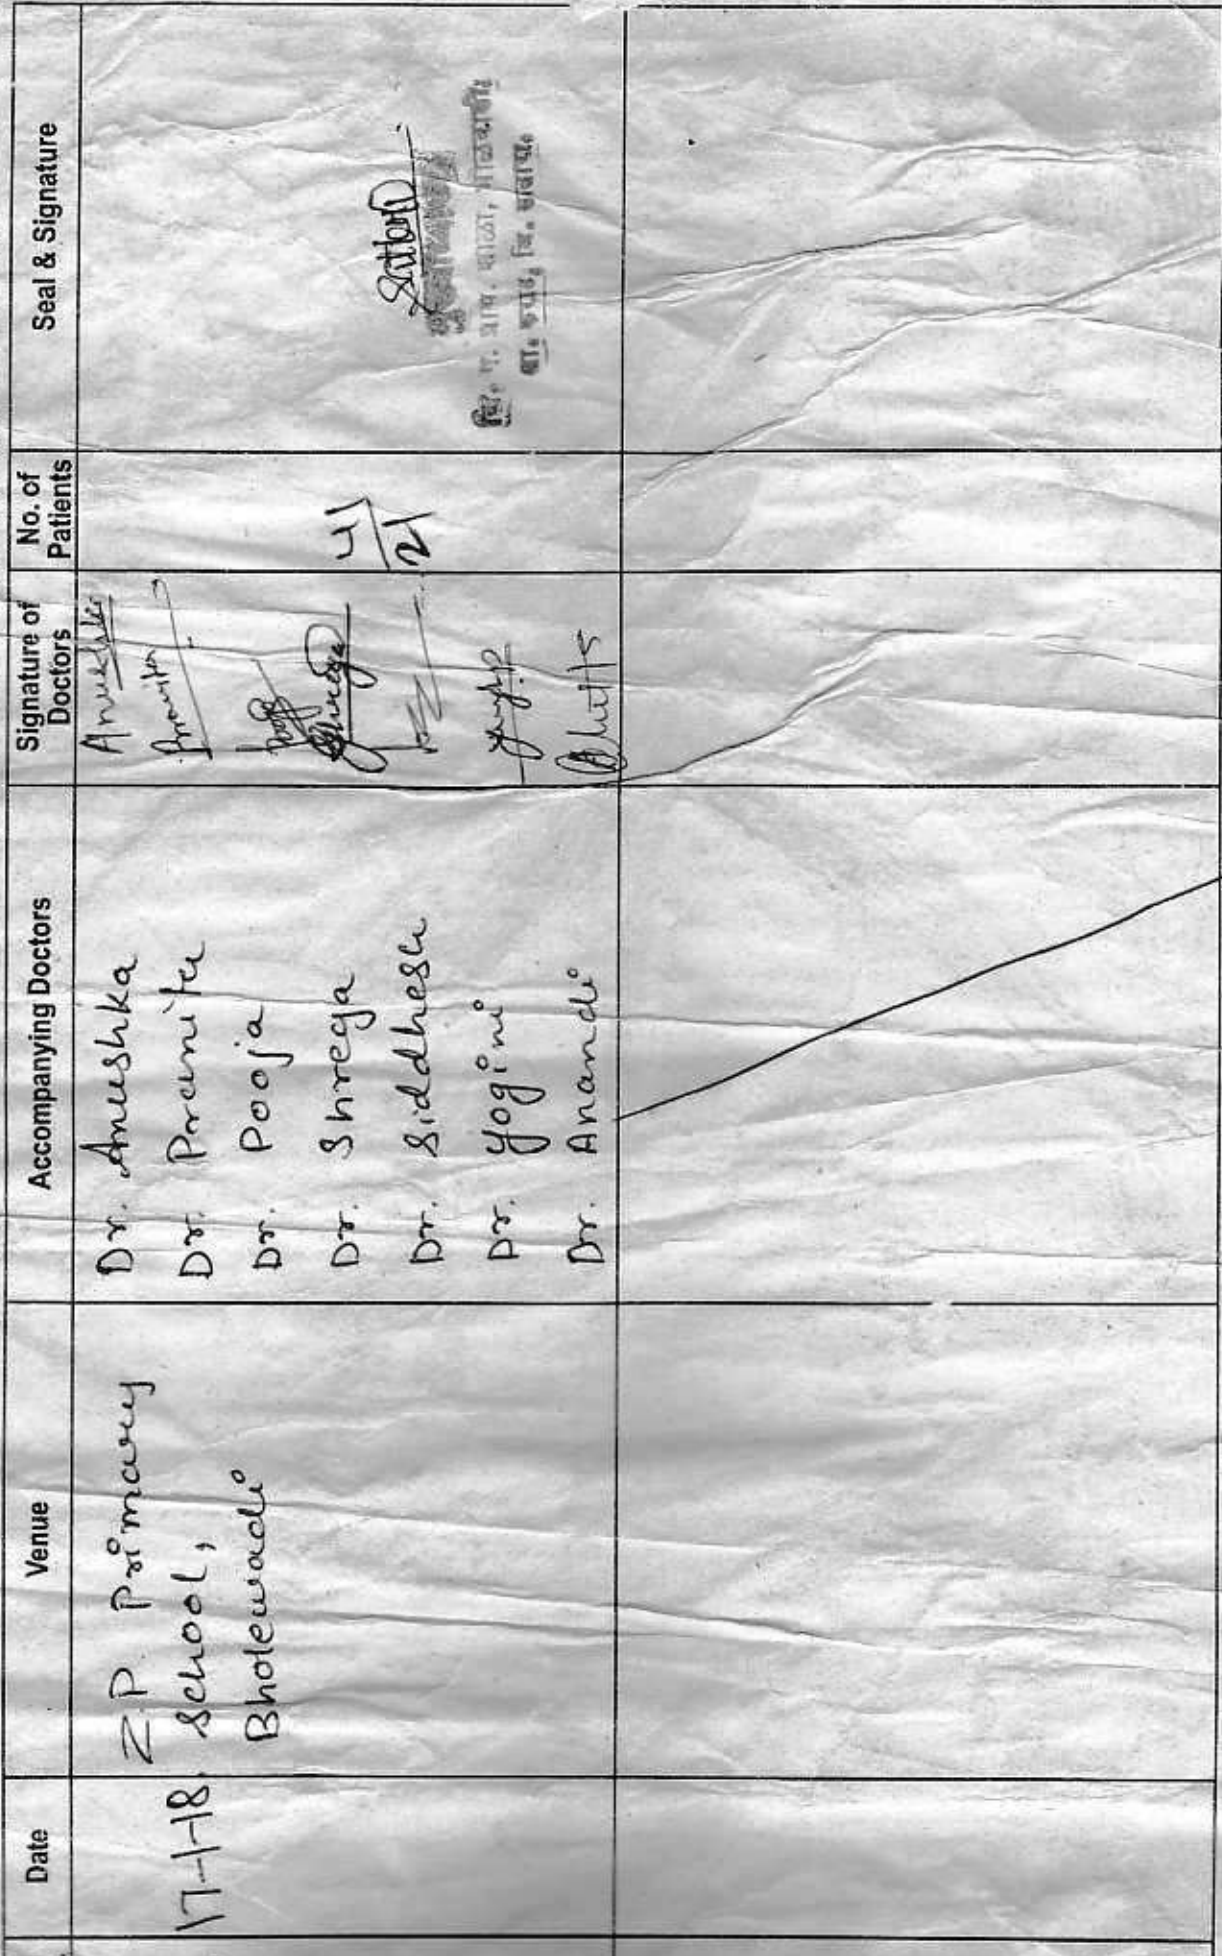 Date Venue Accompanying Doctors Signature of Doctors No. of Patients Seal & Signature
17-1-18.
Z.P. Primary
School,
Bholewadi
Dr. Anushka
Dr. Pranita
Dr. Pooja
Dr. Shreya
Dr. Siddhesh
Dr. Yogini
Dr. Anandi
Anushka
Pranita
Pooja
Shreya
41
21
प्राथ. शाळा,
ता. कराड, जि. सातारा.